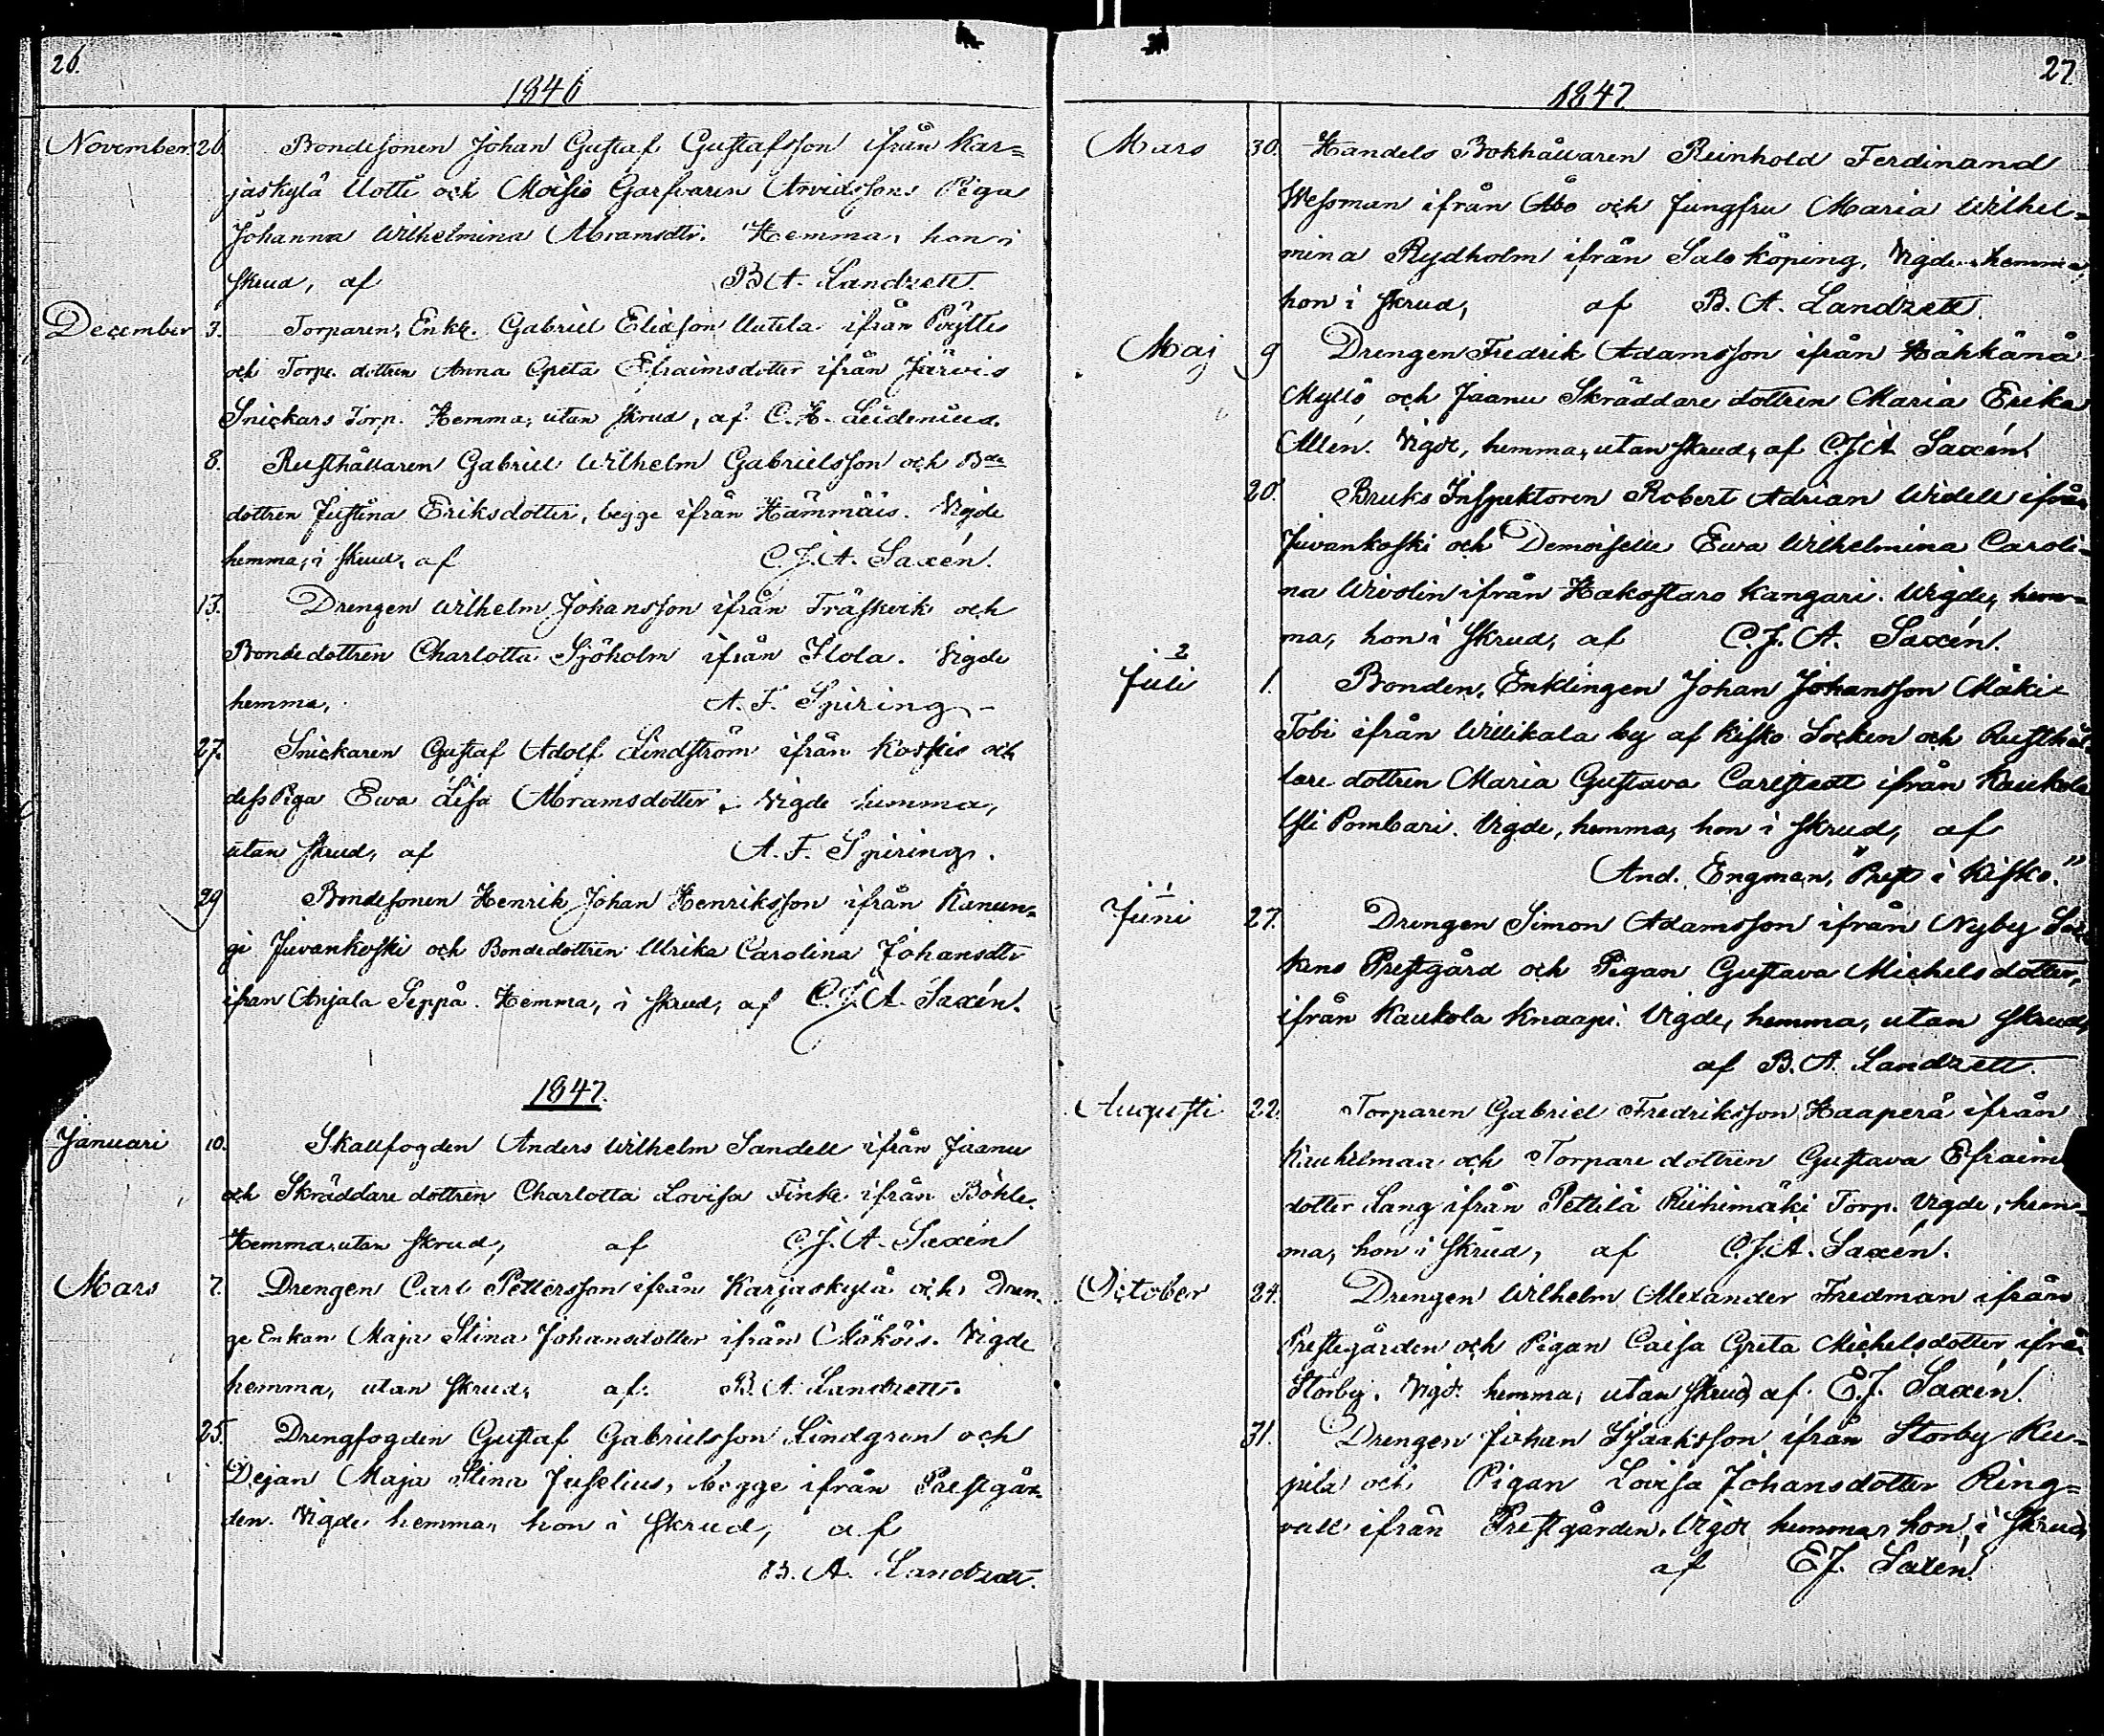 26.
1846
November 26 Bondesonen Johan Gustaf Gustafsson ifrån Kar=
jaskylä Uotti och Moisio Garfvaren Arvidssons Piga
Johanna Wilhelmina Abramsdtr. Hemma, hon i
skrud, af B.A. Landzett.
December 3. Torparen, Enkl. Gabriel Eliasson Uutela ifrån Pöytis
och Torp. dottren Anna Greta Efraimsdotter ifrån Järvis
Snickars Torp. Hemma, utan skrud, af C.H. Leidenius.
8. Rusthållaren Gabriel Wilhelm Gabrielsson och Bde
dottren Justina Eriksdotter, begge ifrån Hämmäis. Vigde
hemma, i skrud, af C.J.A. Saxén.
13. Drengen Wilhelm Johansson ifrån Träskvik och
Bondedottren Charlotta Sjöholm ifrån Ilola. Vigde
hemma, A.F. Spiring
27. Snickaren Gustaf Adolf Lindström ifrån Koskis och
dess Piga Ewa Lisa Abramsdotter. Vigde hemma,
utan skrud, af A.F. Spiring.
29 Bondesonen Henrik Johan Henriksson ifrån Kanun=
gi Juvankoski och Bondedottren Ulrika Carolina Johansdtr
ifrån Anjala Seppä. Hemma, i skrud, af C.J.A. Saxén.
1847.
Januari 10. Skallfogden Anders Wilhelm Sandell ifrån Jaanu
och Skräddare dottren Charlotta Lovisa Finke ifrån Böhle.
Hemma, utan skrud, af C.J.A. Saxén
Mars 7. Drengen Carl Pettersson ifrån Karjaskylä och Dren
ge Enkan Maja Stina Johansdotter ifrån Mököis. Vigde
hemma, utan skrud, af B.A. Landzett.
25. Drengfogden Gustaf Gabrielsson Lindgren och
Dejan Maja Stina Juselius, begge ifrån Prestgår
den. Vigde hemma, hon i skrud, af
B.A. Landzett.
27
1847
Mars 30. Handels Bokhållaren Reinhold Ferdinand
Wessman ifrån Åbo och Jungfru Maria Wilhel=
mina Rydholm ifrån Salo köping, Vigde hemma,
hon i skrud, af B.A. Landzett.
Maj 9 Drengen Fredrik Adamsson ifrån Hähkänä
Myllö och Jaanu Skräddare dottren Maria Erika
Allén. Vigde, hemma, utan skrud, af C.J.A Saxén.
20. Bruks Inspektoren Robert Adrian Widell ifrån
Juvankoski och Demoiselle Ewa Wilhelmina Caroli=
na Wivolin ifrån Hakostaro Kangari. Wigde, hem=
ma, hon i skrud, af C.J.A. Saxén.
2
Juli 1. Bonden, Enklingen Johan Johansson Mäki=
Tobi ifrån Willikala by af Kisko Socken och Rusthål
lare dottren Maria Gustava Carlstedt ifrån Kaukola
Yli Pombari. Vigde, hemma, hon i skrud, af
And. Engman, "Prest i Kisko."
1
Juni 27. Drengen Simon Adamsson ifrån Nyby Soc
kens Prestgård och Pigan Gustava Michelsdotter,
ifrån Kaukola Knaapi. Vigde, hemma, utan skrud,
af B.A. Landzett.
Augusti 22. Torparen Gabriel Fredriksson Haaperä ifrån
Kaukilmaa och Torpare dottren Gustava Efraim
dotter Lang ifrån Pettilä Riihimäki Torp. Vigde, hem=
ma, hon i skrud, af C.J.A. Saxén.
October 24. Drengen Wilhelm Alexander Fredman ifrån
Prestegården och Pigan Caisa Greta Michelsdotter ifrån
Storby. Vigde hemma, utan skrud, af E.J. Saxén.
31. Drengen Johan Isaaksson ifrån Storby Ku=
pila och Pigan Lovisa Johansdotter Ring=
vall ifrån Prestgården. Vigde hemma, hon i skrud,
af E.J. Saxén.